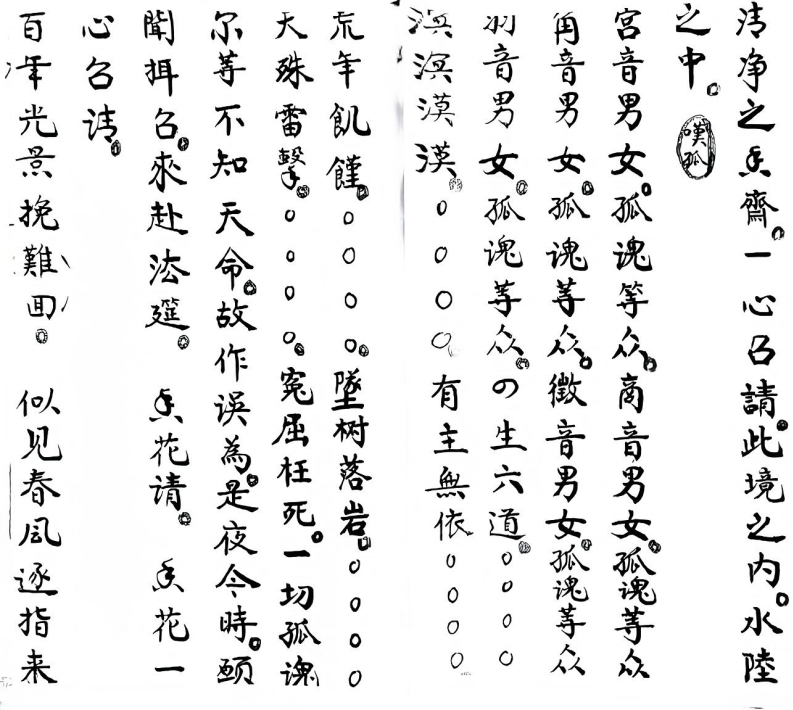 清净之香齋。一心召請。此境之内。水陸
之中。嘆孤
宫音男女。孤魂等众。商音男女。孤魂等众
角音男女。孤魂等众。徵音男女。孤魂等众
羽音男女。孤魂等众。の生六道。○○○○
溟溟漠漠。○○○○有主無依○○○○
荒年飢饉。○○○○。墜树落岩。○○○○
天殊雷擊。○○○○。冤屈枉死。一切孤魂
尔等不知天命。故作误為。是夜今時。
聞召。來赴法筵。香花请。香花一
心召请。
百年光景挽難回。似见春风逐指来